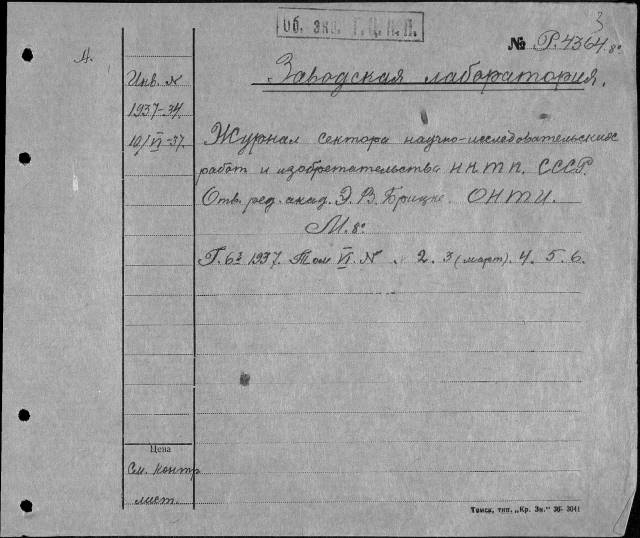 Об. экз. Г.Ц.К.П.
3
№ Р.4364.8°
А.
Заводская лаборатория.
Инв. N
1937-34.
10/VI-37.
Журнал сектора научно-исследовательских
работ и изобретательства НКТП. СССР.
Отв. ред. акад. Э. В. Брицке. ОНТИ.
М. 8°
Г. 6й 1937. Том VI. N . 2. 3 (март). 4. 5. 6.
Цена
См. контр
лист.
Томск, тип. „Кр. Зн.“ 36- 3041